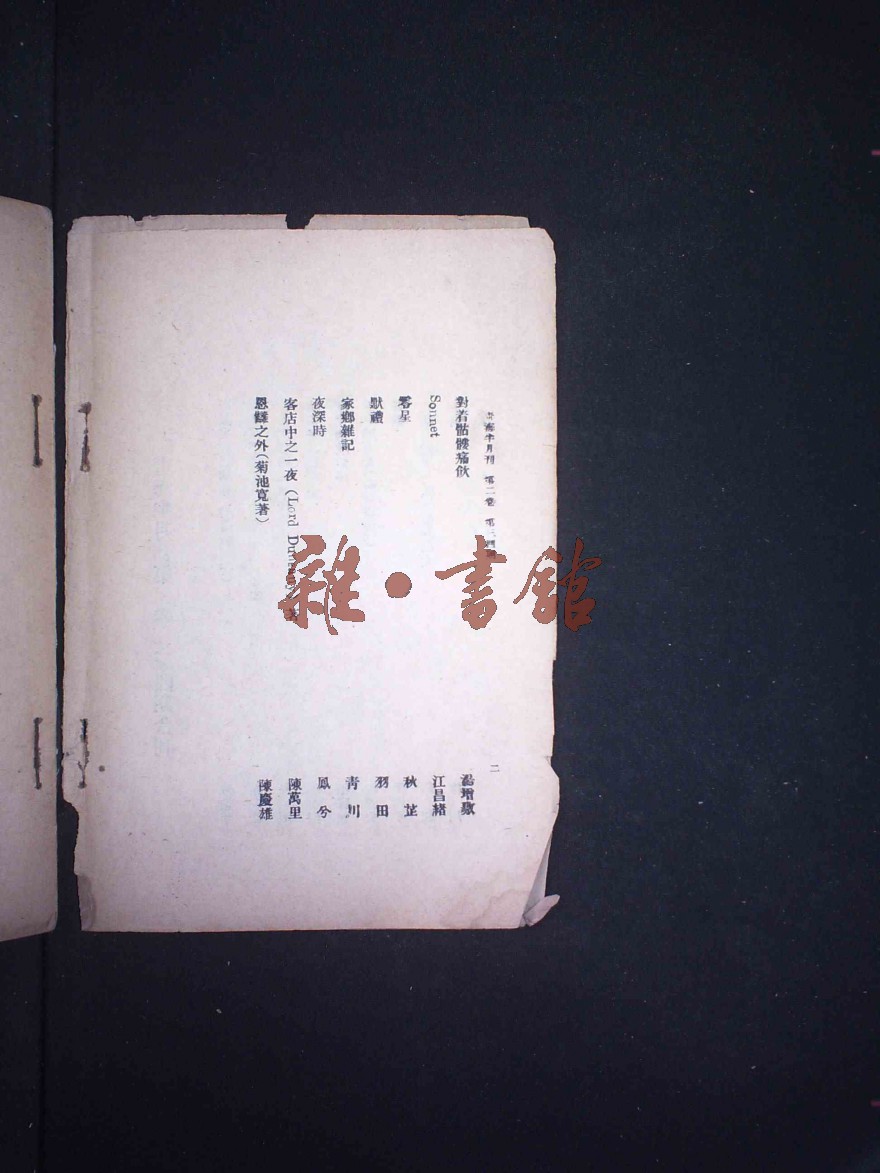 海半月刊 第二卷 第三四
二
對着骷髏痛飲
湯增敭
Sonnet
江昌緒
零星
秋芷
獻禮
羽田
家鄉雜記
青川
夜深時
鳳兮
客店中之一夜（Lord 著
陳萬里
恩讎之外（菊池寬著）
陳慶雄
雜·書館